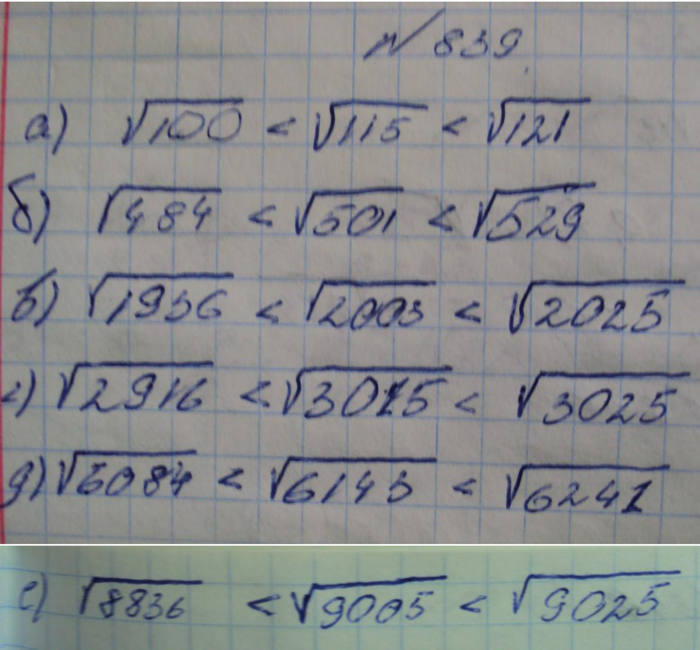 № 839
а) √100 < √115 < √121
б) √484 < √501 < √529
в) √1936 < √2003 < √2025
г) √2916 < √3015 < √3025
д) √6084 < √6143 < √6241
е) √8836 < √9005 < √9025